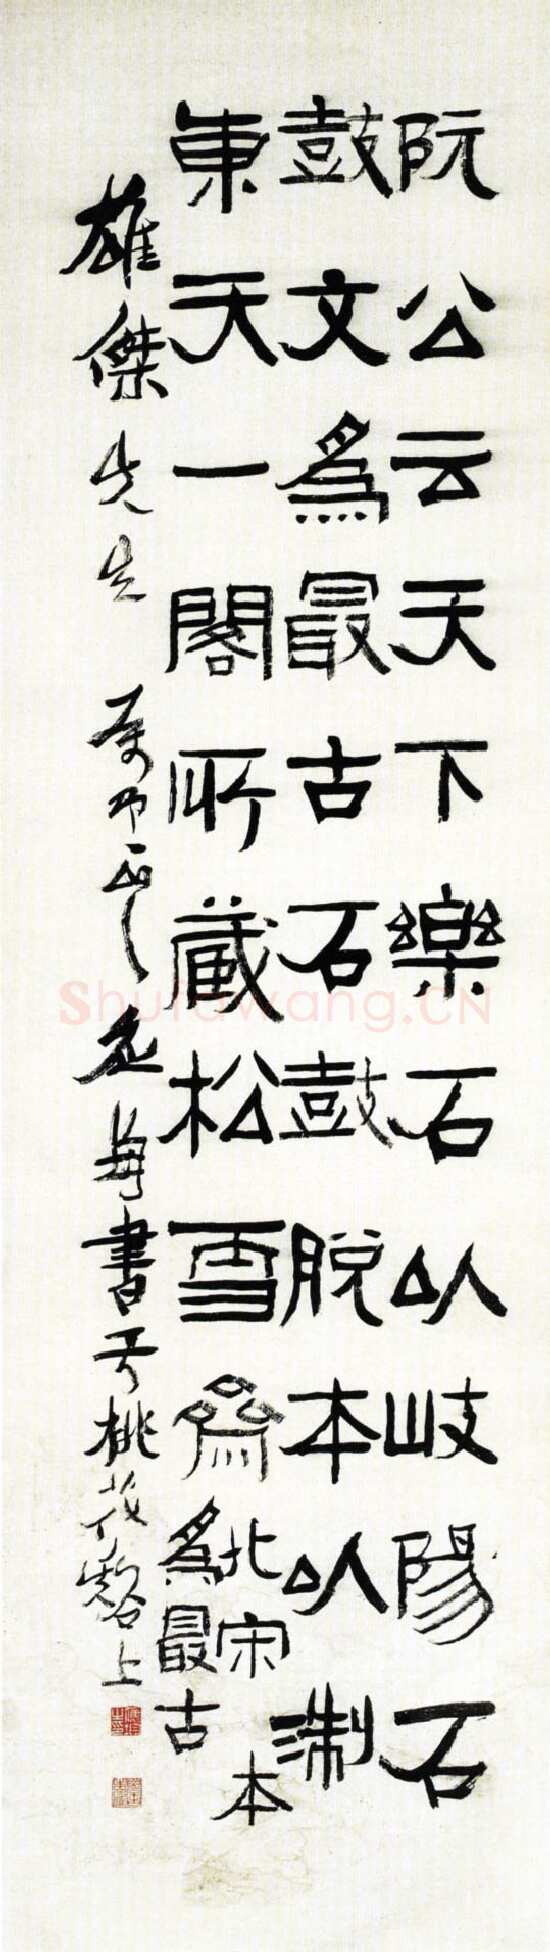 阮公云天下樂石㠯岐陽石
鼓文爲最古石鼓脫本㠯淛
東天一閣所藏松雪齋北宋本
爲最古
雄傑先生
屬即正之
老舟書于桃花谿上
Shufawang.CN